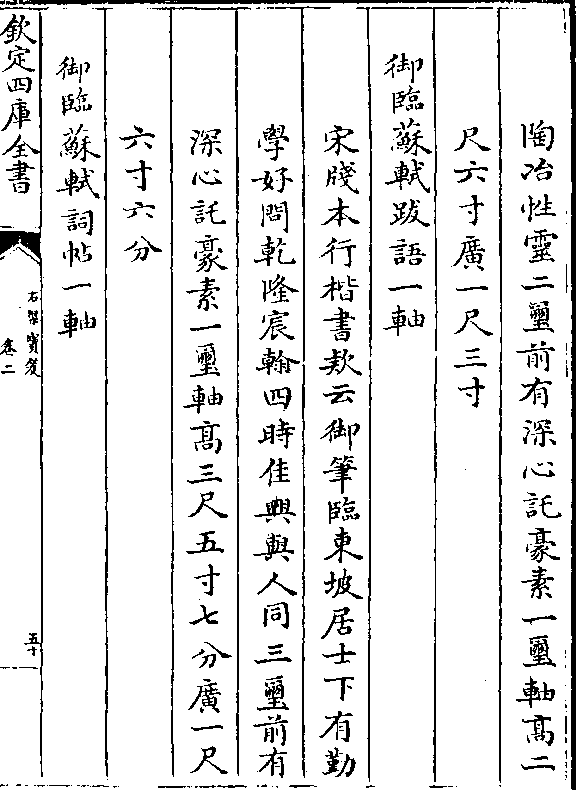 陶冶性靈二璽前有深心託豪素一璽軸髙二
尺六寸廣一尺三寸
御臨蘇軾跋語一軸
宋牋本行楷書欵云御筆臨東坡居士下有勤
學好問乾隆宸翰四時佳興與人同三璽前有
深心託豪素一璽軸髙三尺五寸七分廣一尺
六寸六分
御臨蘇軾詞帖一軸
欽定四庫全書
石渠寶笈
卷二
五十